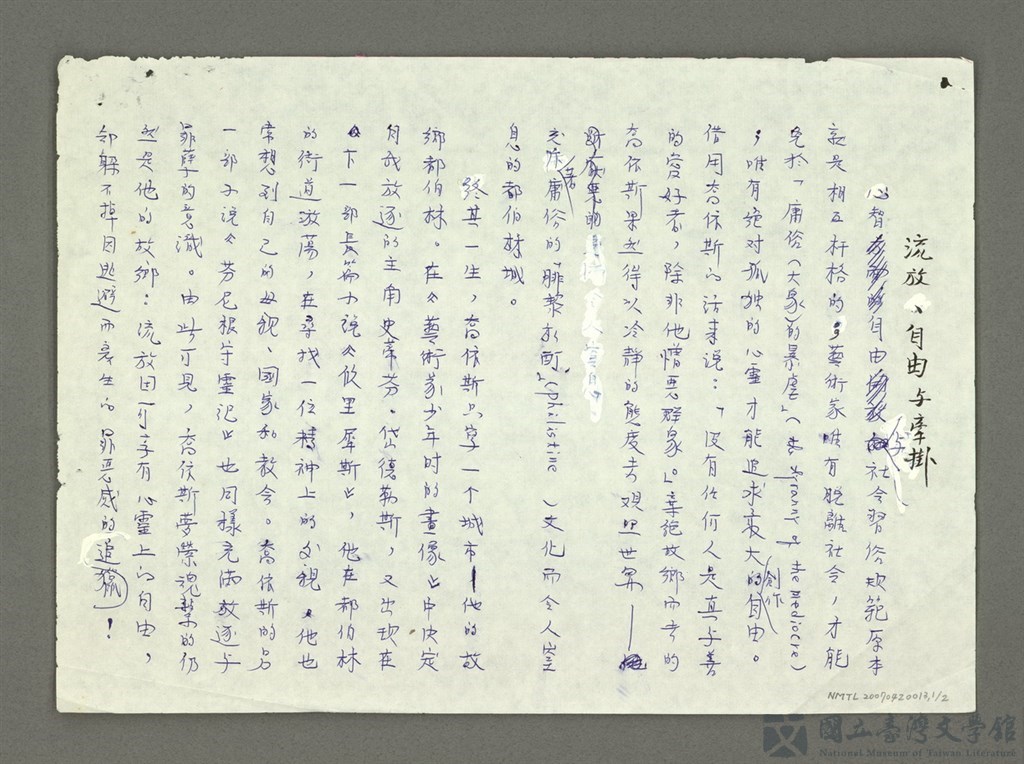 流放、自由与牽掛
心智自由与社会習俗規範原本
就是相互杆格的，藝術家唯有脱離社会，才能
免於「庸俗（大衆）的暴虐」（the tyranny of the mediocre）
，唯有绝对孤独的心靈才能追求最大的創作自由。
借用喬依斯的话来说：「没有任何人是真与善
的愛好者，除非他憎恶群衆。」棄绝故鄉而去的
喬依斯果然得以冷静的態度去观照世界──
充斥庸俗的「腓黎水町」（philistine）文化而令人窒
息的都伯林城。
終其一生，喬依斯只寫一个城市──他的故
鄉都伯林。在《藝術家少年时的畫像》中决定
自我放逐的主角史蒂芬．岱德勒斯，又出现在
下一部長篇小说《攸里犀斯》，他在都伯林
的街道遊荡，在尋找一位精神上的父親，他也
常想到自己的母親、國家和教会。喬依斯的另
一部小说《芬尼根守靈记》也同樣充满放逐与
罪孽的意識。由此可見，喬依斯夢縈魂繫的仍
然是他的故鄉：流放固可享有心靈上的自由，
卻躲不掉因逃避而衰生的罪恶感的追獵！
NMTL 20070420013,1/2
國立臺灣文學館
National Museum of Taiwan Literature